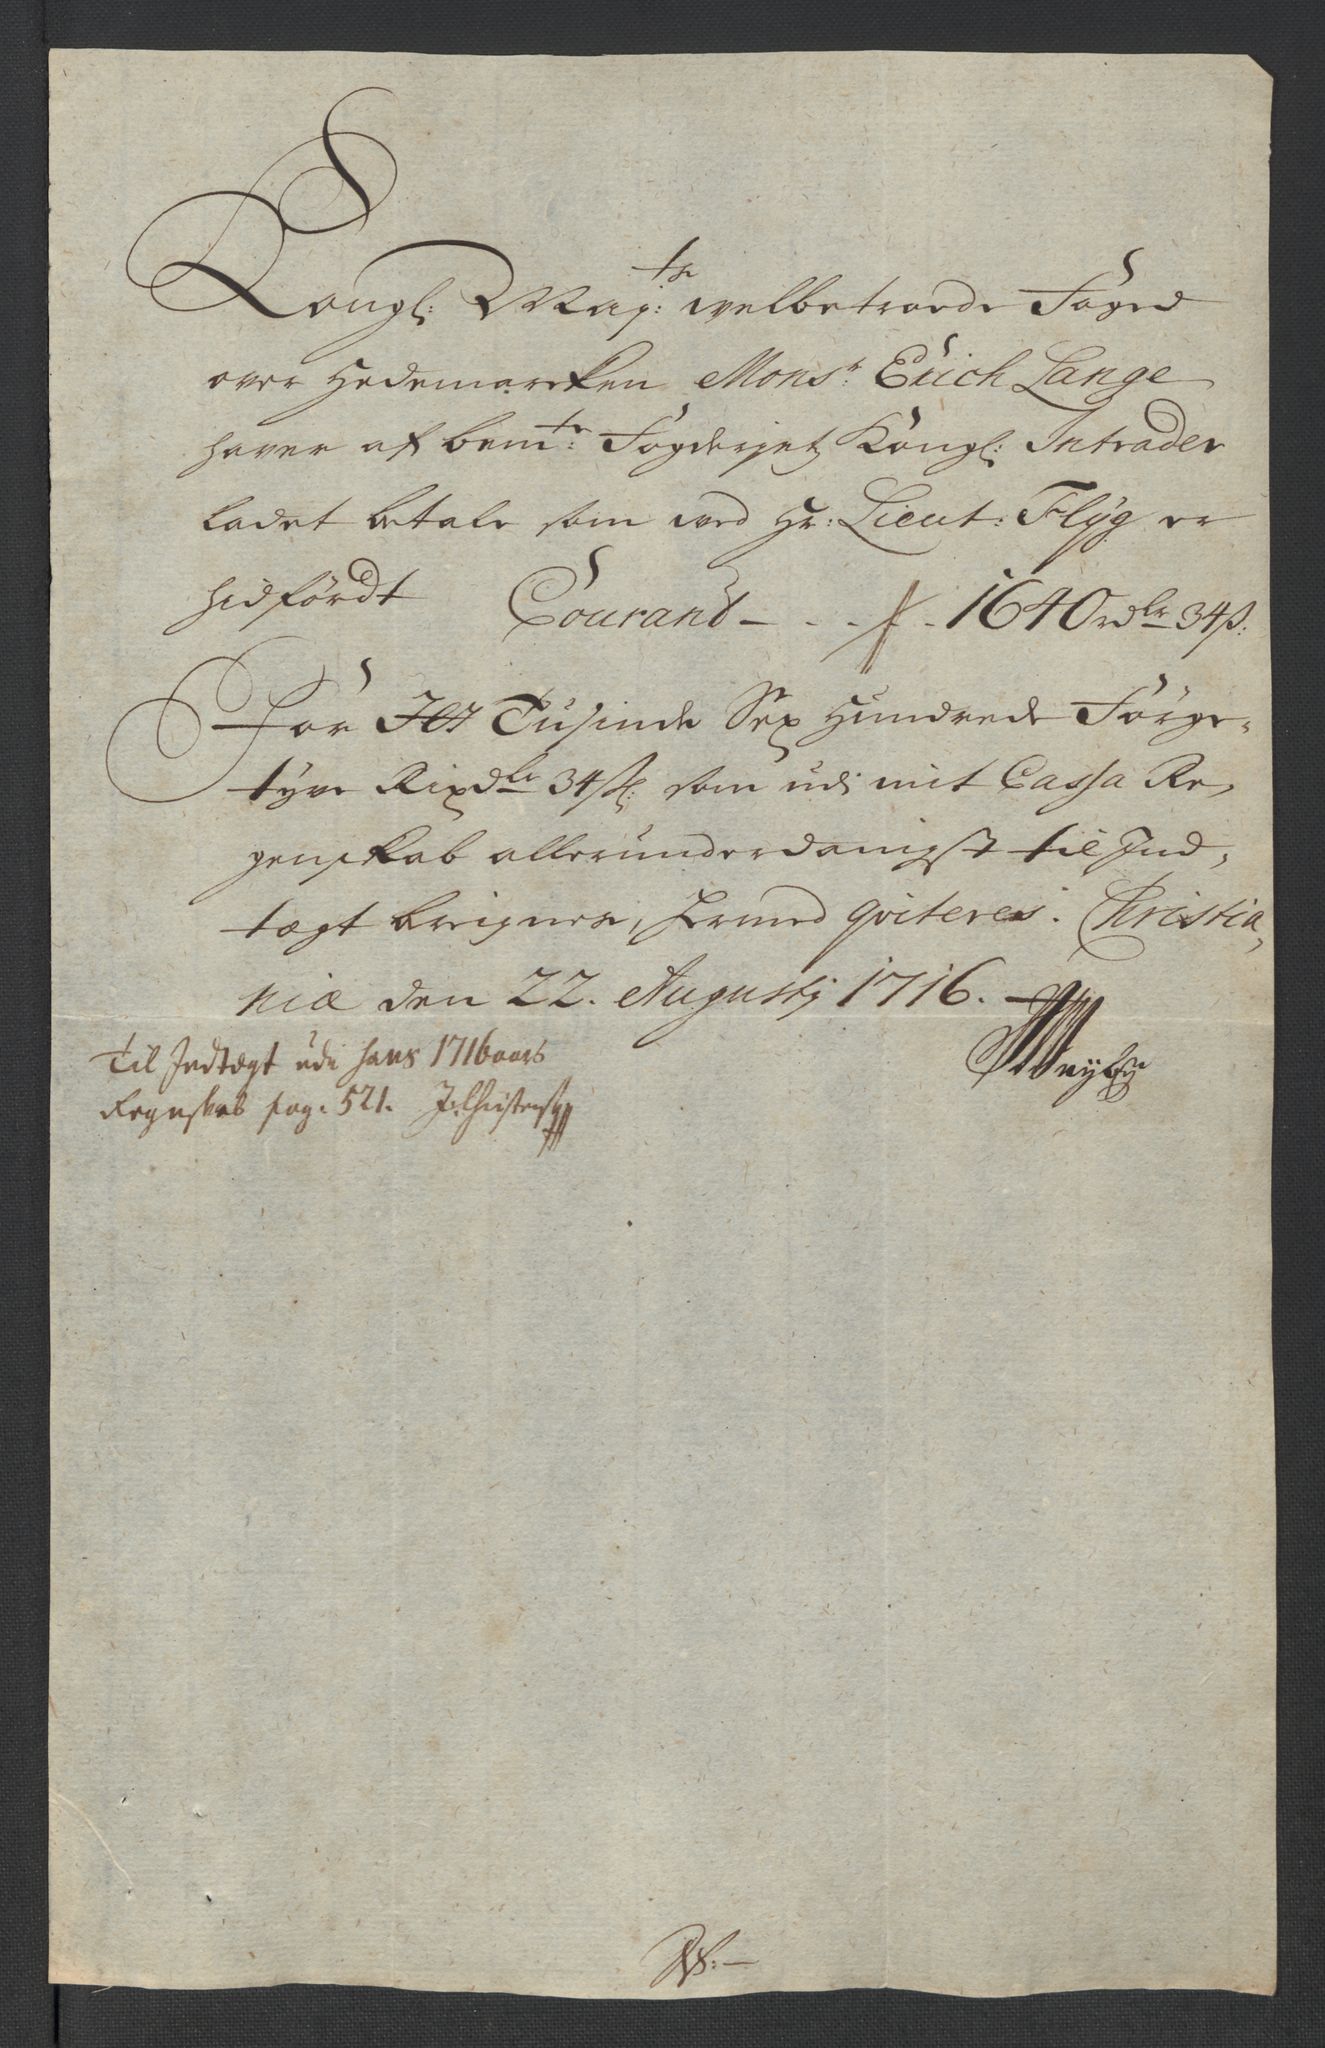 Kongl: Maj:ts welbetroede Foged
over Hedemarcken Mons:r Erich Lange
haver af bem:te Fogderjet Kongl: Intrader
ladet betale som ved Hr: Lieut: Flyg er
hidfördt Courant - . . . 1640 rdlr 34 ß:
For Jet Tusinde Sex Hundrede Förge-
tyve Rixdlr 34 ß: som udj mit Cassa Re,
genskab allerunderdanigst til Ind,
tægt bereignes, hermed qviteres. Christia,
niæ den 22. Augustj 1716.
Til Indtægt udi hans 1716 aars
Regnskab pag. 521. J: Christensen